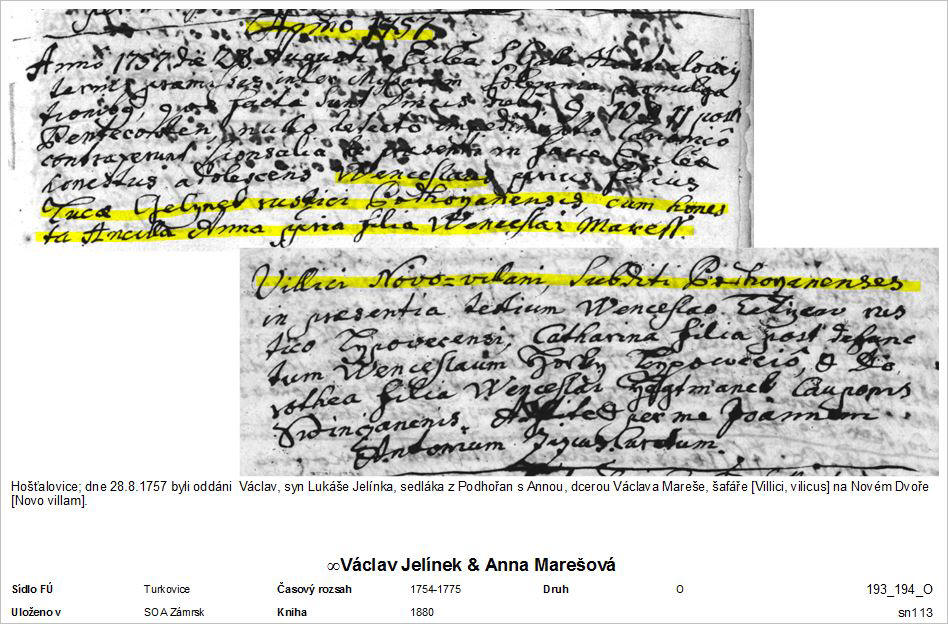 Anno 1757
Anno 1757 die 28 Augusti in Ecclea S. Galli
ternis praemissis inter Missarum solemnia promulga
tionibus, quae factae sunt Dnicis 9 10 & 11 post
Pentecosten, nullo detecto impedimento Canonico
contraxerunt Sponsalia de praesenti in facie Ecclae
honestus adolescens Wenceslaus filius
Lucae Gelynek rustici cum hones
ta Ancilla Anna filia Wenceslai Maress
Villici Novo-vilani, Subditi
in presentia testium Wenceslao rus
tico Catharina filia post defunc
tum Wenceslaum & Do
rothea filia Wenceslai Cauponis
per me Joannem
Antonium Curatum
Hošťalovice; dne 28.8.1757 byli oddáni Václav, syn Lukáše Jelínka, sedláka z Podhořan s Annou, dcerou Václava Mareše, šafáře [Villici, vilicus] na Novém Dvoře
[Novo villam].
∞Václav Jelínek & Anna Marešová
Sídlo FÚ Turkovice Časový rozsah 1754-1775 Druh O 193_194_O
Uloženo v SOA Zámrsk Kniha 1880 sn113